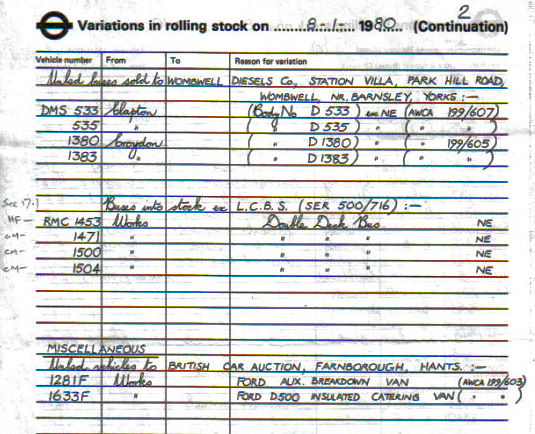 2
Variations in rolling stock on ........8-1-......1980.... (Continuation)
Vehicle number From To Reason for variation
Unlsd buses sold to WOMBWELL DIESELS Co, STATION VILLA, PARK HILL ROAD,
WOMBWELL, NR. BARNSLEY, YORKS :—
DMS 533 Clapton (Body No D 533) ex NE (AWCA 199/607)
535 " ( " D 535) " ( " " )
1380 Croydon ( " D 1380) " ( " 199/605)
1383 " ( " D 1383) " ( " " )
Buses into stock ex L.C.B.S. (SER 500/716) :—
HF— RMC 1453 Works Double Deck Bus NE
CM— 1471 " " " " NE
CM— 1500 " " " " NE
CM— 1504 " " " " NE
MISCELLANEOUS
Unlsd vehicles to BRITISH CAR AUCTION, FARNBOROUGH, HANTS. :—
1281F Works FORD AUX. BREAKDOWN VAN (AWCA 199/603)
1633F " FORD D500 INSULATED CATERING VAN ( " " )